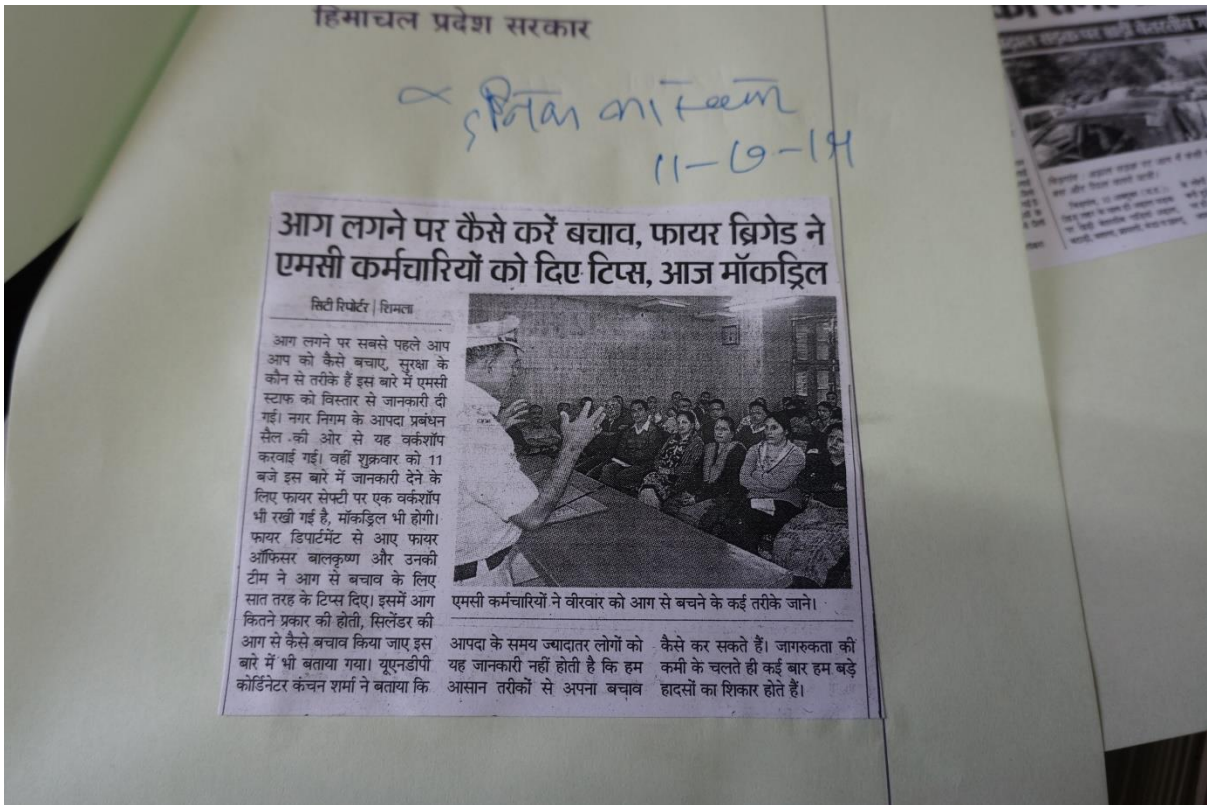 हिमाचल प्रदेश सरकार
दैनिक भास्कर
11-7-14
आग लगने पर कैसे करें बचाव, फायर ब्रिगेड ने
एमसी कर्मचारियों को दिए टिप्स, आज मॉकड्रिल
सिटी रिपोर्टर | शिमला
आग लगने पर सबसे पहले आप
आप को कैसे बचाए, सुरक्षा के
कौन से तरीके हैं इस बारे में एमसी
स्टाफ को विस्तार से जानकारी दी
गई। नगर निगम के आपदा प्रबंधन
सैल की ओर से यह वर्कशॉप
करवाई गई। वहीं शुक्रवार को 11
बजे इस बारे में जानकारी देने के
लिए फायर सेफ्टी पर एक वर्कशॉप
भी रखी गई है, मॉकड्रिल भी होगी।
फायर डिपार्टमेंट से आए फायर
ऑफिसर बालकृष्ण और उनकी
टीम ने आग से बचाव के लिए
सात तरह के टिप्स दिए। इसमें आग
कितने प्रकार की होती, सिलेंडर की
आग से कैसे बचाव किया जाए इस
बारे में भी बताया गया। यूएनडीपी
कोर्डिनेटर कंचन शर्मा ने बताया कि
एमसी कर्मचारियों ने वीरवार को आग से बचने के कई तरीके जाने।
आपदा के समय ज्यादातर लोगों को
यह जानकारी नहीं होती है कि हम
आसान तरीकों से अपना बचाव
कैसे कर सकते हैं। जागरुकता की
कमी के चलते ही कई बार हम बड़े
हादसों का शिकार होते हैं।